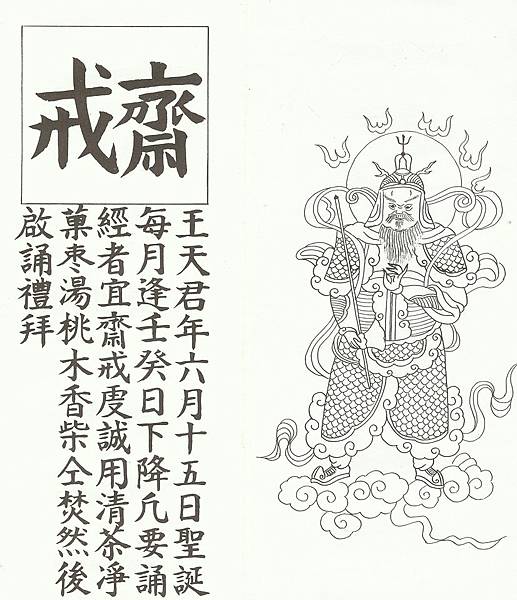 齋戒
王天君年六月十五日聖誕
每月逢壬癸日下降凡要誦
經者宜齋戒虔誠用清茶淨
菓枣湯桃木香柴仝焚然後
啟誦禮拜